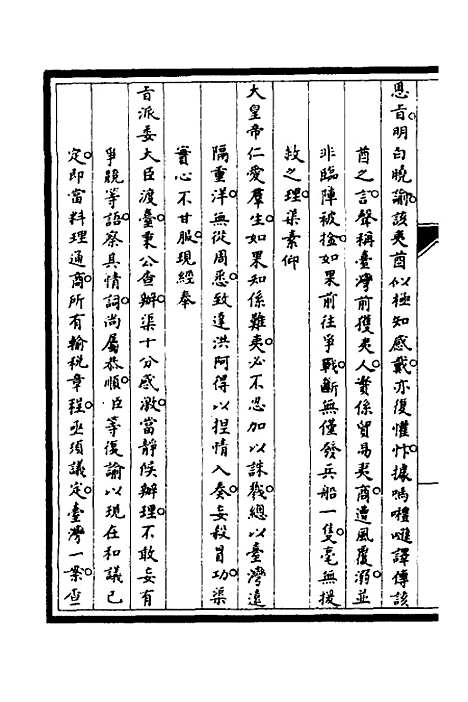 恩旨明白曉諭該夷酋似極知感戴亦復懼忭據嗎禮遜譯傳該
酋之言聲稱臺灣前獲夷人實係貿易夷商遭風覆溺並
非臨陣被捡如果前往爭戰斷無僅發兵船一隻毫無援
救之理渠素仰
大皇帝仁愛羣生如果知係難夷必不忍加以誅戮總以臺灣遠
隔重洋無從周悉致達洪阿得以捏情入奏妄殺冒功渠
實心不甘服現經奉
旨派委大臣渡臺秉公查辦渠十分感激當靜候辦理不敢妄有
爭競等語察其情詞尚屬恭順臣等復諭以現在和議已
定即當料理通商所有輸税章程亟須議定臺灣一案查